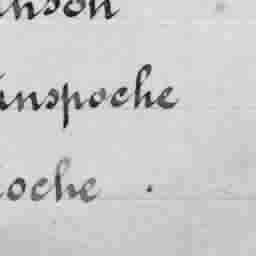 anson
anspoche
oche .